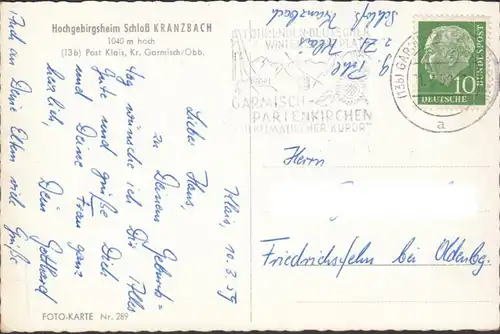 Hochgebirgsheim Schloß KRANZBACH
1040 m hoch
(13b) Post Klais, Kr. Garmisch/Obb.
Klais, 10.3.59
Lieber Hans,
zu Deinem Geburts=
tag wünsche ich Dir Alles
Gute und grüße Dich
und Deine Frau ganz
herzlich,
Dein Gotthard
Auch an Deine Eltern viele Grüße
z. Zt. Klais
Schloß Kranzbach
GARMISCH-
PARTENKIRCHEN
HEILKLIMATISCHER KURORT
(13b) GARM
a
10
DEUTSCHE
BUNDESPOST
Herrn
Friedrichsfehn bei Oldenbg.
FOTO-KARTE Nr. 289